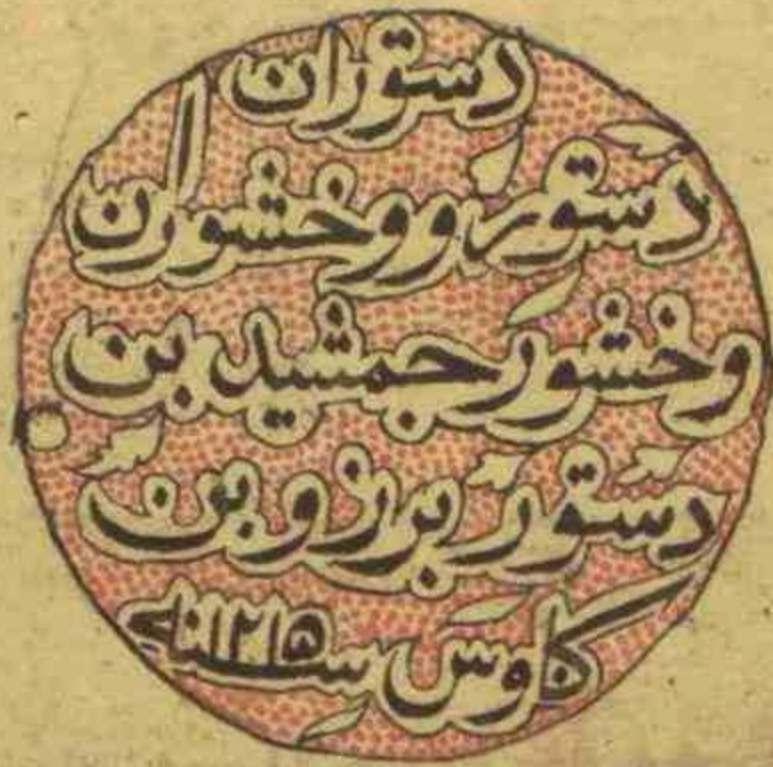 دستوران
دستور ووخشوران
وخشور جمشید بن
دستور برزو بن
کاوس سنه ۱۲۱۵